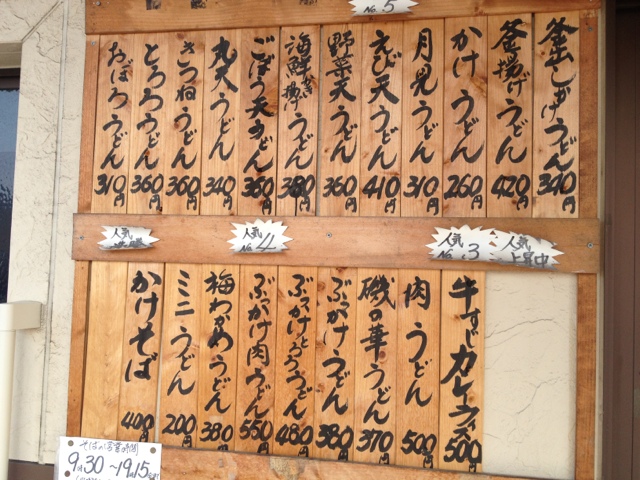 No.5
釜出ししょうゆうどん 340円
釜揚げうどん 420円
かけうどん 260円
月見うどん 310円
えび天うどん 410円
野菜天うどん 360円
海鮮かき揚げうどん 380円
ごぼう天うどん 360円
丸天うどん 340円
きつねうどん 360円
とろろうどん 360円
おぼろうどん 310円
人気上昇中
人気No.3
人気No.4
人気
牛すじカレーうどん 500円
肉うどん 500円
磯の華うどん 370円
ぶっかけうどん 380円
ぶっかけとろろうどん 480円
ぶっかけ肉うどん 550円
梅わかめうどん 380円
ミニうどん 200円
かけそば 400円
そばの営業時間
9時30〜19時15